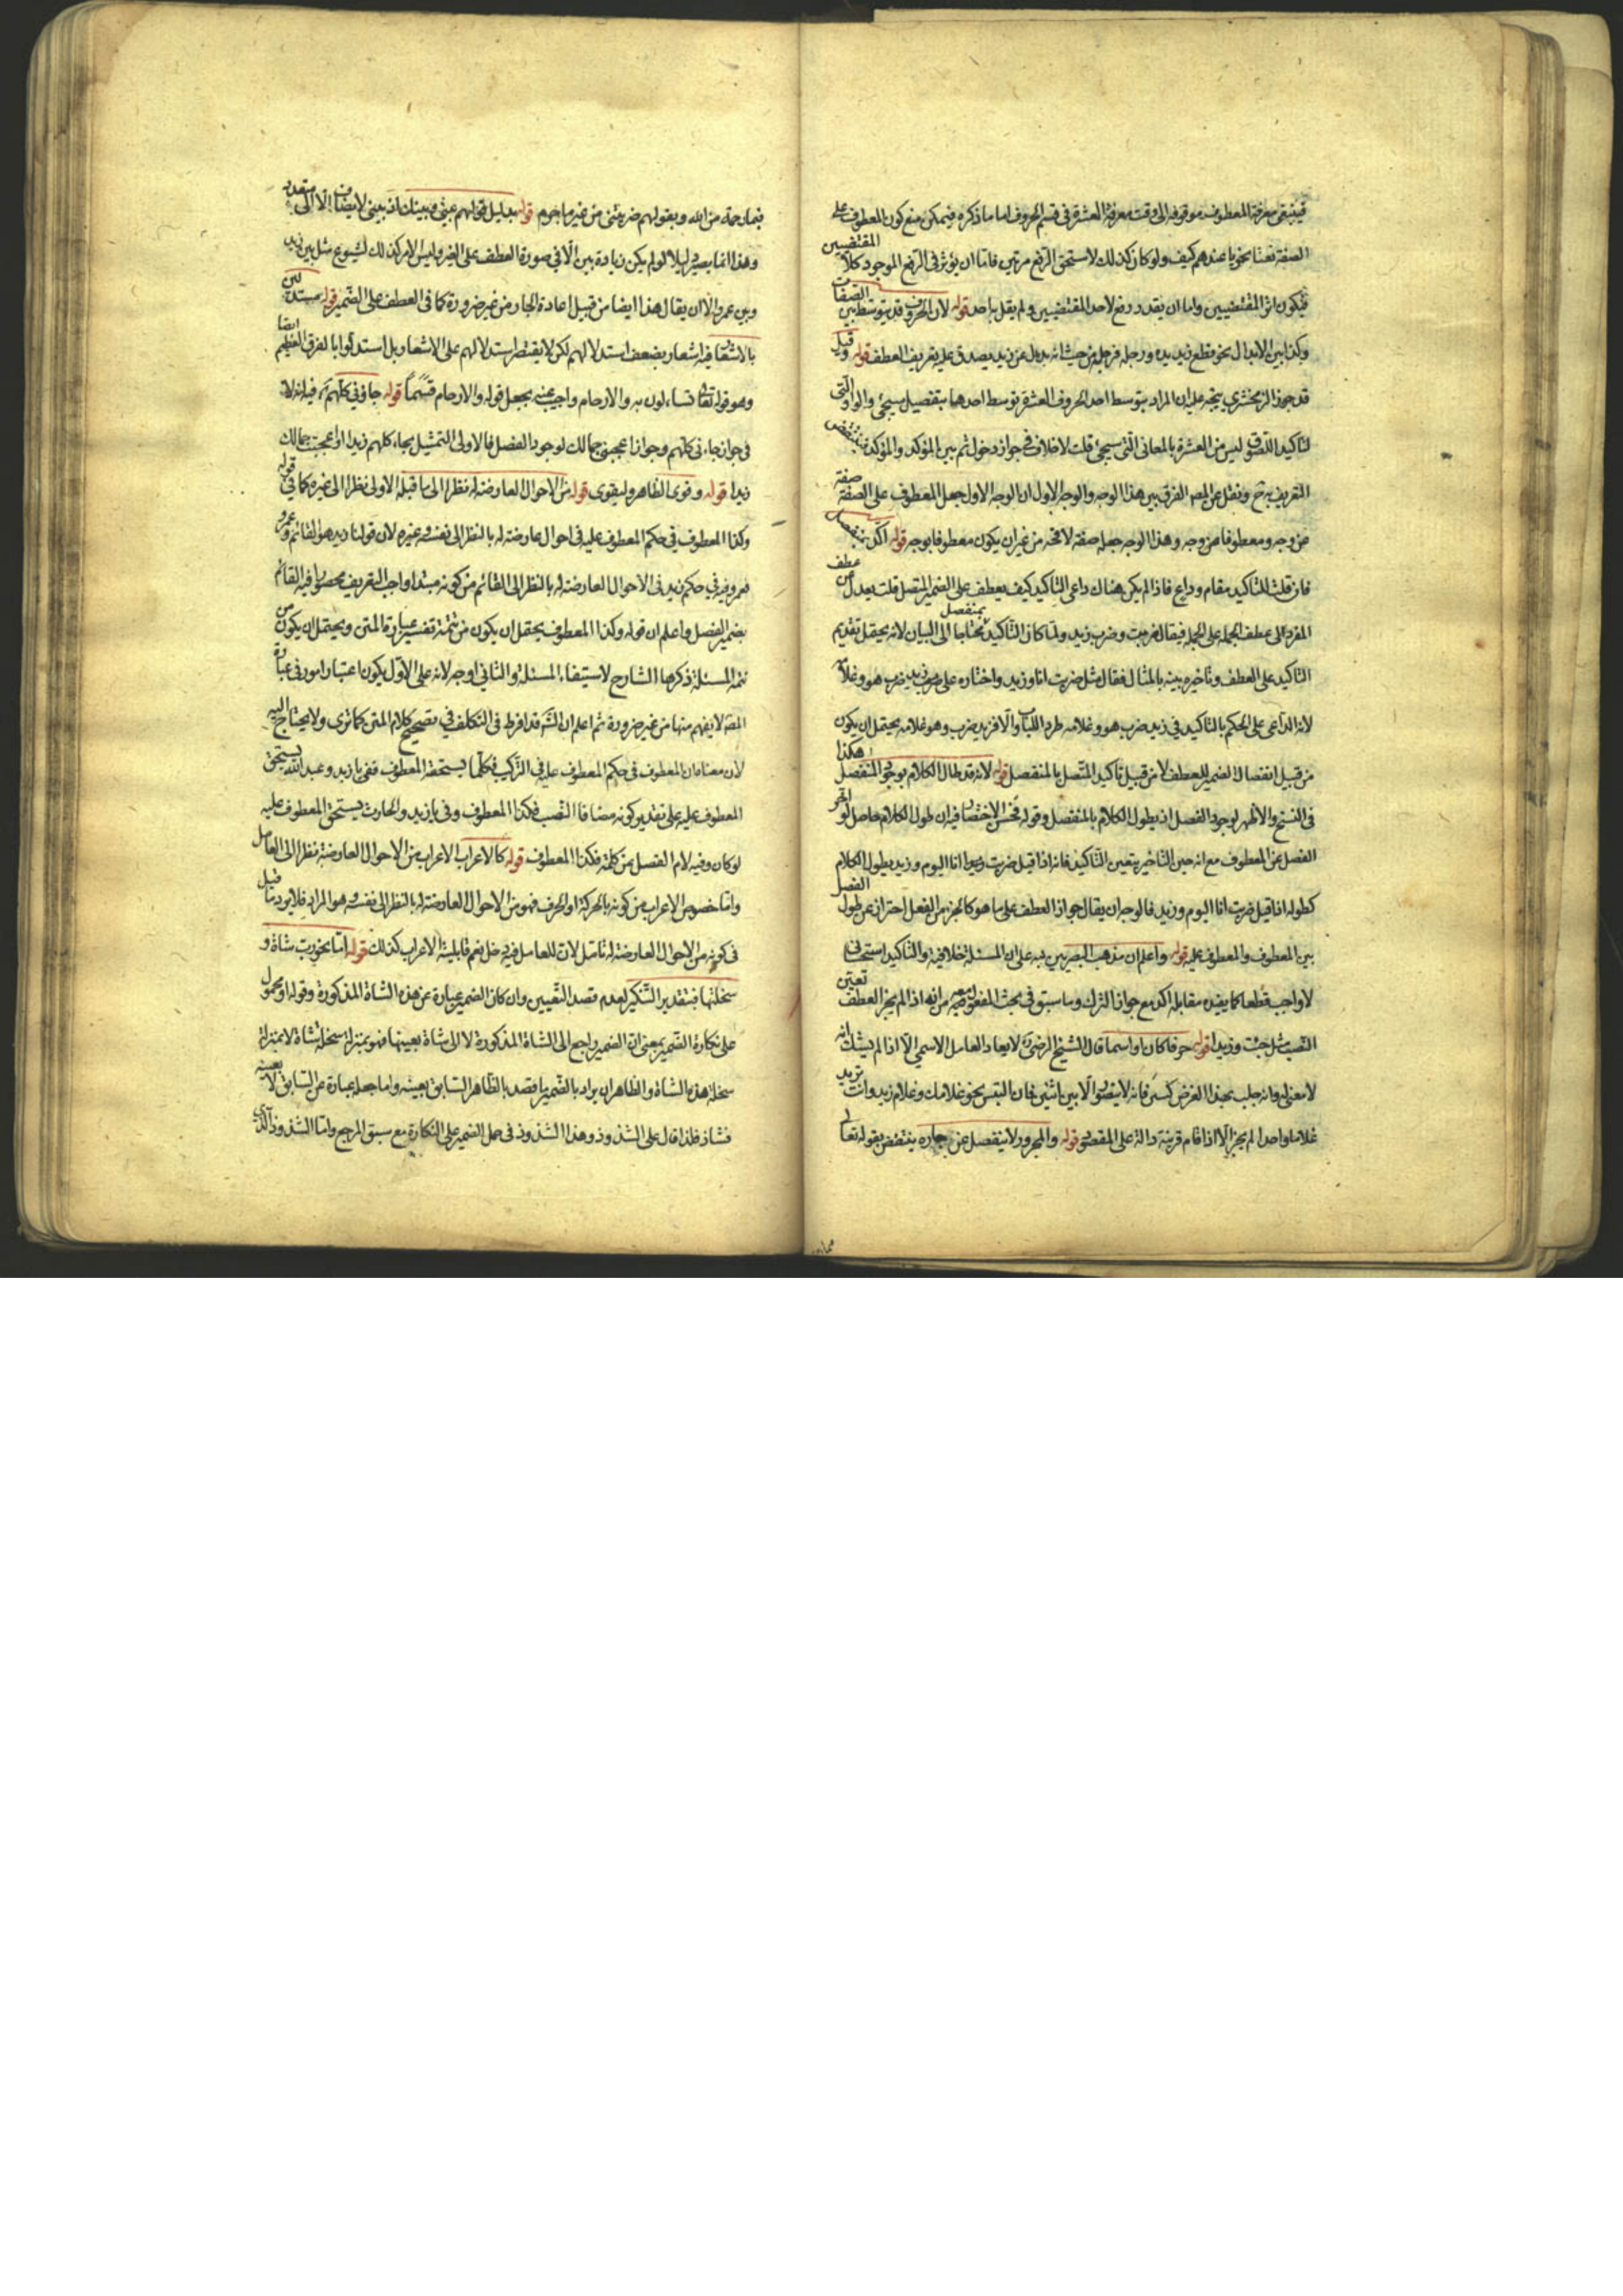 فينبغي معرفة المعطوف موقوفة الى وقت معرفة العشرة في قسم الحروف اما ما ذكره فيمكن منع كون المعطوف على
الصفة نعتا نحويا عندهم كيف ولو كان كذلك لاستحق الرفع مرتين فاما ان يؤثر في الرفع الموجود كلا المقتضيين
فيكون اثر المقتضيين واما ان يقدر رفع لاحد المقتضيين ولم يقل به احد قوله لان الحروف قد يتوسط بين الصفات
وكذا بين الابدال نحو قطع زيد يده ورجله فرجله من حيث انه بدل عن زيد يصدق عليه تعريف العطف قوله وقيل
قد جوز الزمخشري يتجه عليه ان المراد بتوسط احد الحروف العشرة توسط احدها بتفصيل سيجئ والواو التي
لتاكيد اللصوق ليس من العشرة بالمعاني التي سيجئ قلت لا خلاف في جواز دخول ثم بين المؤكد والمؤكد فينتقض
التعريف به ح ونقل عن المص الفرق بين هذا الوجه والوجه الاول ان الوجه الاول جعل المعطوف على الصفة صفة
من وجه ومعطوفا من وجه وهذا الوجه جعله صفة لا محة من غير ان يكون معطوفا بوجه قوله اكد بمنفصل
فان قلت للتاكيد مقام وداع فاذا لم يكن هناك داعي التاكيد كيف يعطف على الضمير المتصل قلت يعدل من عطف
المفرد الى عطف الجملة على الجملة فيقال ضربت وضرب زيد ولما كان التاكيد بمنفصل محتاجا الى البيان لانه يحتمل تقديم
التاكيد على العطف وتاخيره بينه بالمثال فقال مثل ضربت انا وزيد واختاره على ضرب زيد ضرب هو وغلامه
لانه الداعي على الحكم بالتاكيد في زيد ضرب هو وغلامه طرد الباب والا فزيد ضرب وهو غلامه يحتمل ان يكون
من قبيل انفصال الضمير للعطف لا من قبيل تاكيد المتصل بالمنفصل قوله لانه قد طال الكلام بوجود المنفصل هكذا
في النسخ والاظهر لوجود الفصل اذ يطول الكلام بالمنفصل وقوله فحسن الاختصار فيه ان طول الكلام حاصل لو اخر
الفصل عن المعطوف مع انه حين التاخير يتعين التاكيد فانه اذا قيل ضربت وزيد انا اليوم وزيد يطول الكلام
كطوله اذا قيل ضربت انا اليوم وزيد فالوجه ان يقال جواز العطف على ما هو كالجزء من الفعل احتراز عن طول الفصل
بين المعطوف والمعطوف عليه قوله واعلم ان مذهب البصريين نبه على ان المسئلة خلافية والتاكيد استحساني
لا واجب قطعا كما يفيده مقابلة اكد مع جواز الترك وما سبق في بحث المفعول معه من انه اذا لم يجز العطف تعين
النصب مثل جئت وزيدا قوله حرفا كان او اسما قال الشيخ الرضي لا يعاد العامل الاسمي الا اذا لم يشك انه
لا معنى له وانه جلب بهذا الغرض كبين فانه لا يتصور الا بين اثنين فان التبس نحو غلامك وغلام زيد وانت تريد
غلاما واحدا لم يجز الا اذا قام قرينة دالة على المقصود قوله والمجرور لا ينفصل عن جاره ينتقض بقوله تعالى
فبما رحمة من الله وبقولهم ضربتني من غير ما جرم قوله بدليل قولهم بيني وبينك اذ بيني لا يضاف الا الى متعدد
وهذا انما يصير دليلا لو لم يكن زيادة بين الا في صورة العطف على الضمير وليس الامر كذلك لشيوع مثل بين زيد
وبين عمرو الا ان يقال هذا ايضا من قبيل اعادة الجار من غير ضرورة كما في العطف على الضمير قوله مستدلين
بالاشعار فيه اشعار بضعف استدلالهم لكن لا يقتصر استدلالهم على الاشعار بل استدلوا بالفرق العظيم ايضا
وهو قوله تعالى تساءلون به والارحام واجيب عنه بجعل قوله والارحام قسما قوله جاؤني كلهم فيه انه لا
في جواز جاءني كلهم وجواز اعجبني جمالك لوجود الفصل فالاولى التمثيل بجاء كلهم زيدا او اعجبت جمالك
زيدا قوله وقوى الظاهر وليقوى قوله من الاحوال العارضة له نظرا الى ما قبله الاولى نظرا الى غيره كما في قوله
وكذا المعطوف في حكم المعطوف عليه في احوال عارضة له بالنظر الى نفسه وغيره لان قولنا زيد هو القائم وعمرو
فعمرو فيه في حكم زيد في الاحوال العارضة له بالنظر الى القائم من كونه مبتدا واجب التعريف محصورا فيه القائم
بضمير الفصل واعلم ان قوله وكذا المعطوف يحتمل ان يكون من تتمة تفسير عبارة المتن ويحتمل ان يكون من
تتمة المسئلة ذكرها الشارح لاستيفاء المسئلة والثاني اوجه لانه على الاول يكون اعتبار امور في عبارة
المص لا يفهم منها من غير ضرورة ثم اعلم ان الش قد افرط في التكلف في تصحيح كلام المتن كما ترى ولا يحتاج اليه
لان معناه ان المعطوف في حكم المعطوف عليه في التركيب فكلما يستحقه المعطوف ففي يا زيد وعبد الله يستحق
المعطوف عليه على تقدير كونه مضافا النصب فكذا المعطوف وفي يا زيد والحارث يستحق المعطوف عليه
لو كان وفيه لام الفصل من كلمة فكذا المعطوف قوله كالاعراب الاعراب من الاحوال العارضة نظرا الى العامل
واما خصوص الاعراب من كونه بالحركة او الحرف فهو من الاحوال العارضة له بالنظر الى نفسه وهو المراد فلا يرد ما قيل
في كونه من الاحوال العارضة له تامل لان للعامل فيه دخل نعم قابلية الاعراب كذلك قوله اما نحو رب شاة و
سخلتها فبتقدير التنكير لعدم قصد التعيين وان كان الضمير عبارة عن هذه الشاة المذكورة وقوله او محمول
على نكارة الضمير بمعنى ان الضمير راجع الى الشاة المذكورة لا الى شاة بعينها فهو بمنزلة سخلة شاة لا بمنزلة
سخلة هذه الشاة والظاهر ان يراد بالضمير ما قصد بالظاهر السابق بعينه واما جعله عبارة عن السابق لا بعينه
فشاذ فلذا قال على الشذوذ وهذا الشذوذ في حمل الضمير على النكارة مع سبق المرجع واما الشذوذ الذي